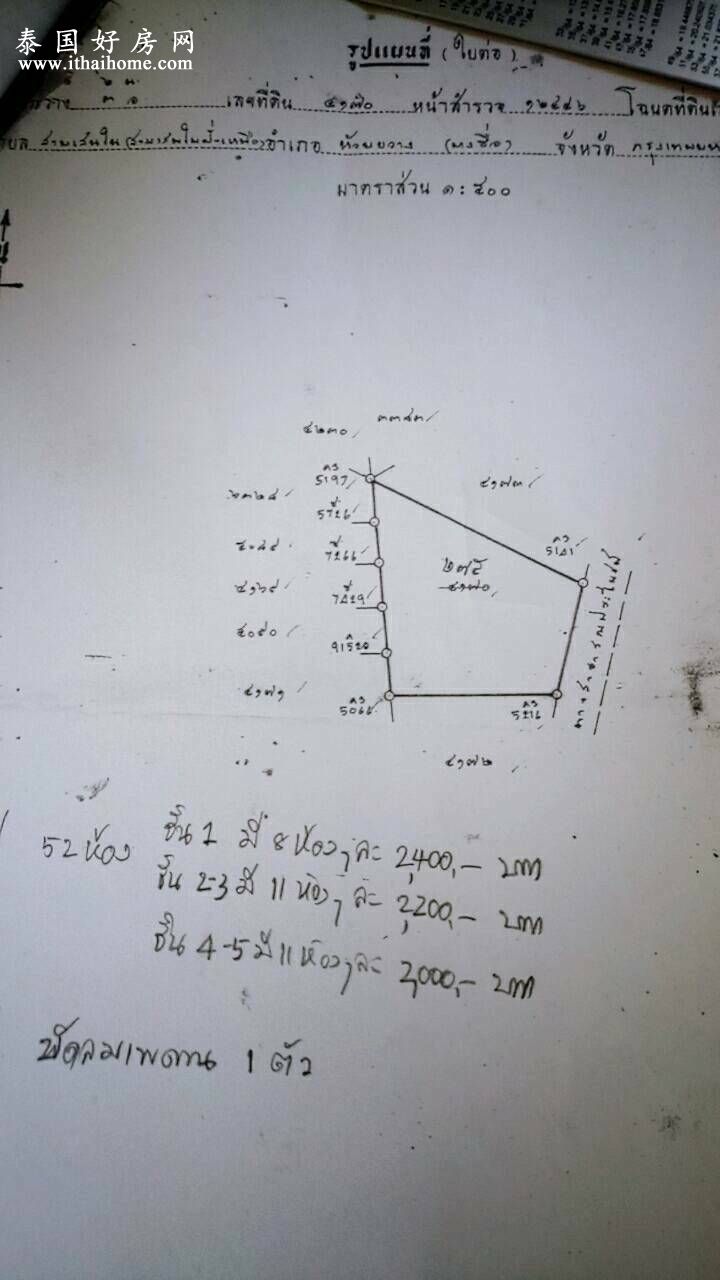 泰国好房网
www.ithaihome.com
รูปแผนที่ (ใบต่อ)
เลขที่ดิน ๔๑๗๐ หน้าสำรวจ ๑๒๕๕๖ โฉนดที่ดิน
สามเสนใน (สามเสนในฝั่งเหนือ) อำเภอ ห้วยขวาง (บางซื่อ) จังหวัด กรุงเทพมห
มาตราส่วน ๑ : ๕๐๐
น
๔๒๓๐ ๓๓๕๓
คว 5197
๔๑๗๓
5726
7266
คว 5141
๒๗๕
๔๑๗๐
๔๑๖๙
7429
๕๐๙๐
91520
๔๑๗๑
คว
คว 5216
ทางสาธารณประโยชน์
๔๑๗๒
52 ห้อง ชั้น 1 มี 8 ห้องๆ ละ 2,400.- บาท
ชั้น 2-3 มี 11 ห้องๆ ละ 2,200.- บาท
ชั้น 4-5 มี 11 ห้องๆ ละ 2,000.- บาท
พัดลมเพดาน 1 ตัว